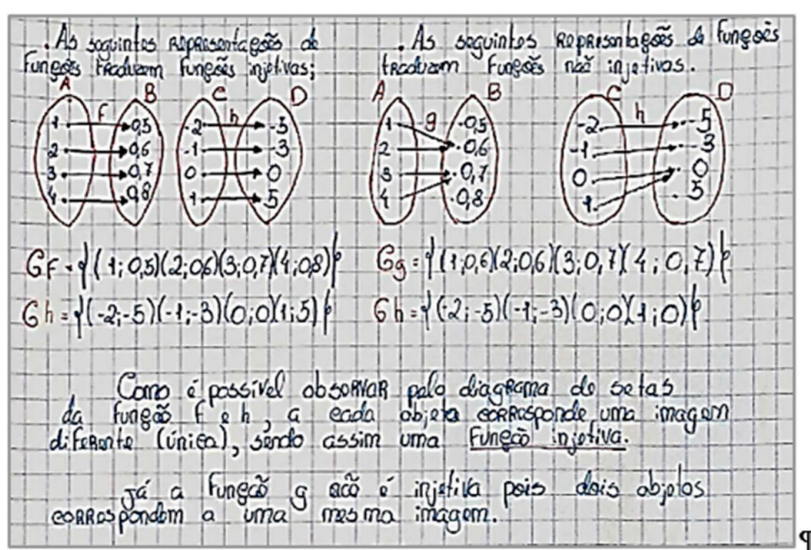 . As seguintes representações de
funções traduzem funções injetivas;
A B C D
f h
1 0,5 -2 -5
2 0,6 -1 -3
3 0,7 0 0
4 0,8 1 5
Gf = {(1;0,5)(2;0,6)(3;0,7)(4;0,8)}
Gh = {(-2;-5)(-1;-3)(0;0)(1;5)}
. As seguintes representações de funções
traduzem funções não injetivas.
A B C D
g h
1 .0,5 -2 -5
2 .0,6 -1 -3
3 .0,7 0 0
4 .0,8 1 5
Gg = {(1;0,6)(2;0,6)(3;0,7)(4;0,7)}
Gh = {(-2;-5)(-1;-3)(0;0)(1;0)}
Como é possível observar pelo diagrama de setas
da função f e h, a cada objeto corresponde uma imagem
diferente (única), sendo assim uma função injetiva.
Já a função g não é injetiva pois dois objetos
correspondem a uma mesma imagem.
¶